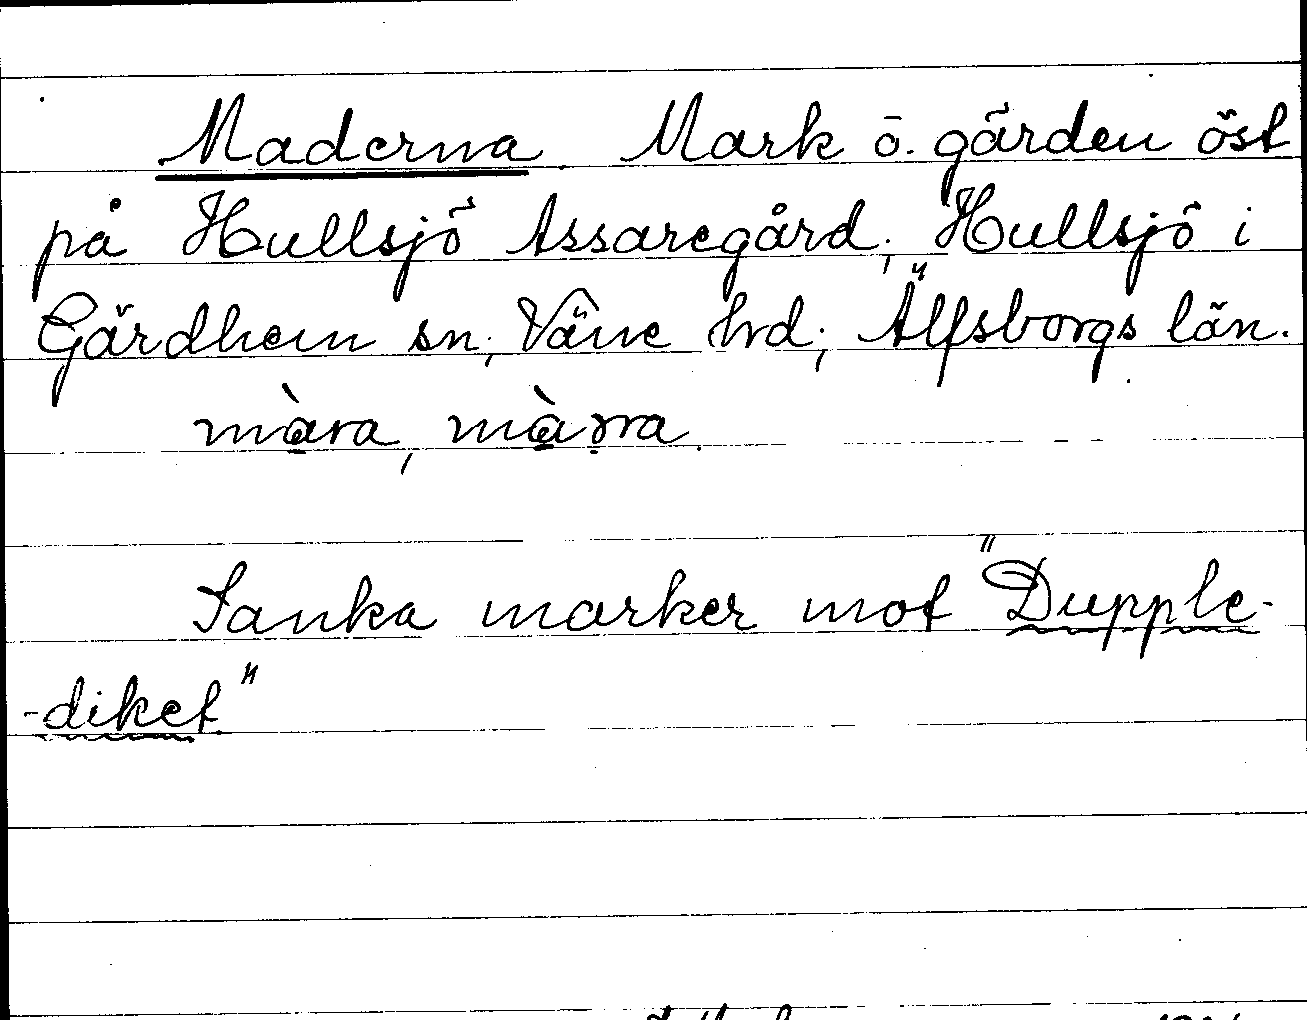 Maderna. Mark ö. gärden öst
på Hullsjö Assaregård, Hullsjö i
Gärdhem sn; Väne hd; Älfsborgs län.
màra, màrra.
Sanka marker mot "Dupple-
-diket"